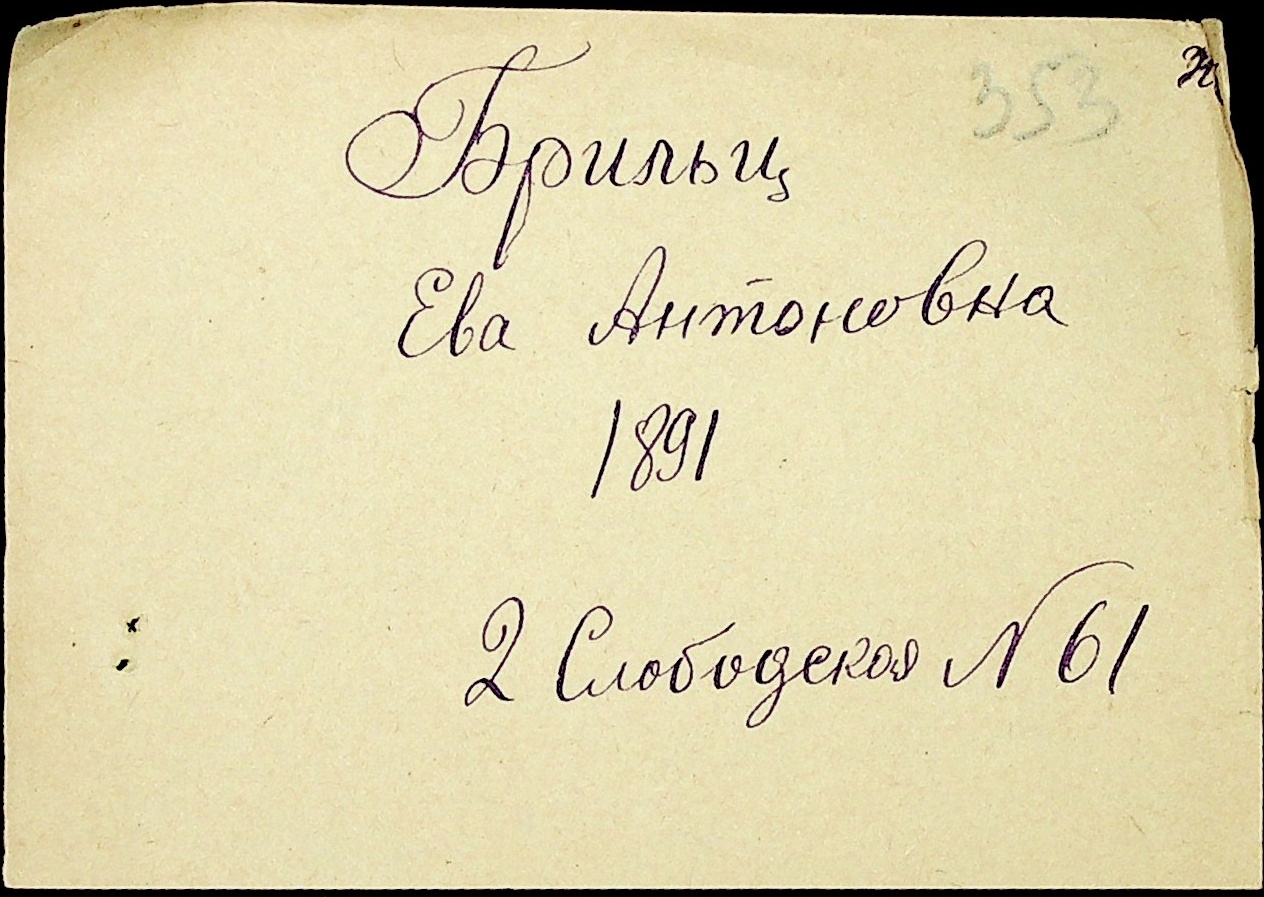 353
Брильц
Ева Антоновна
1891
2 Слободская N 61